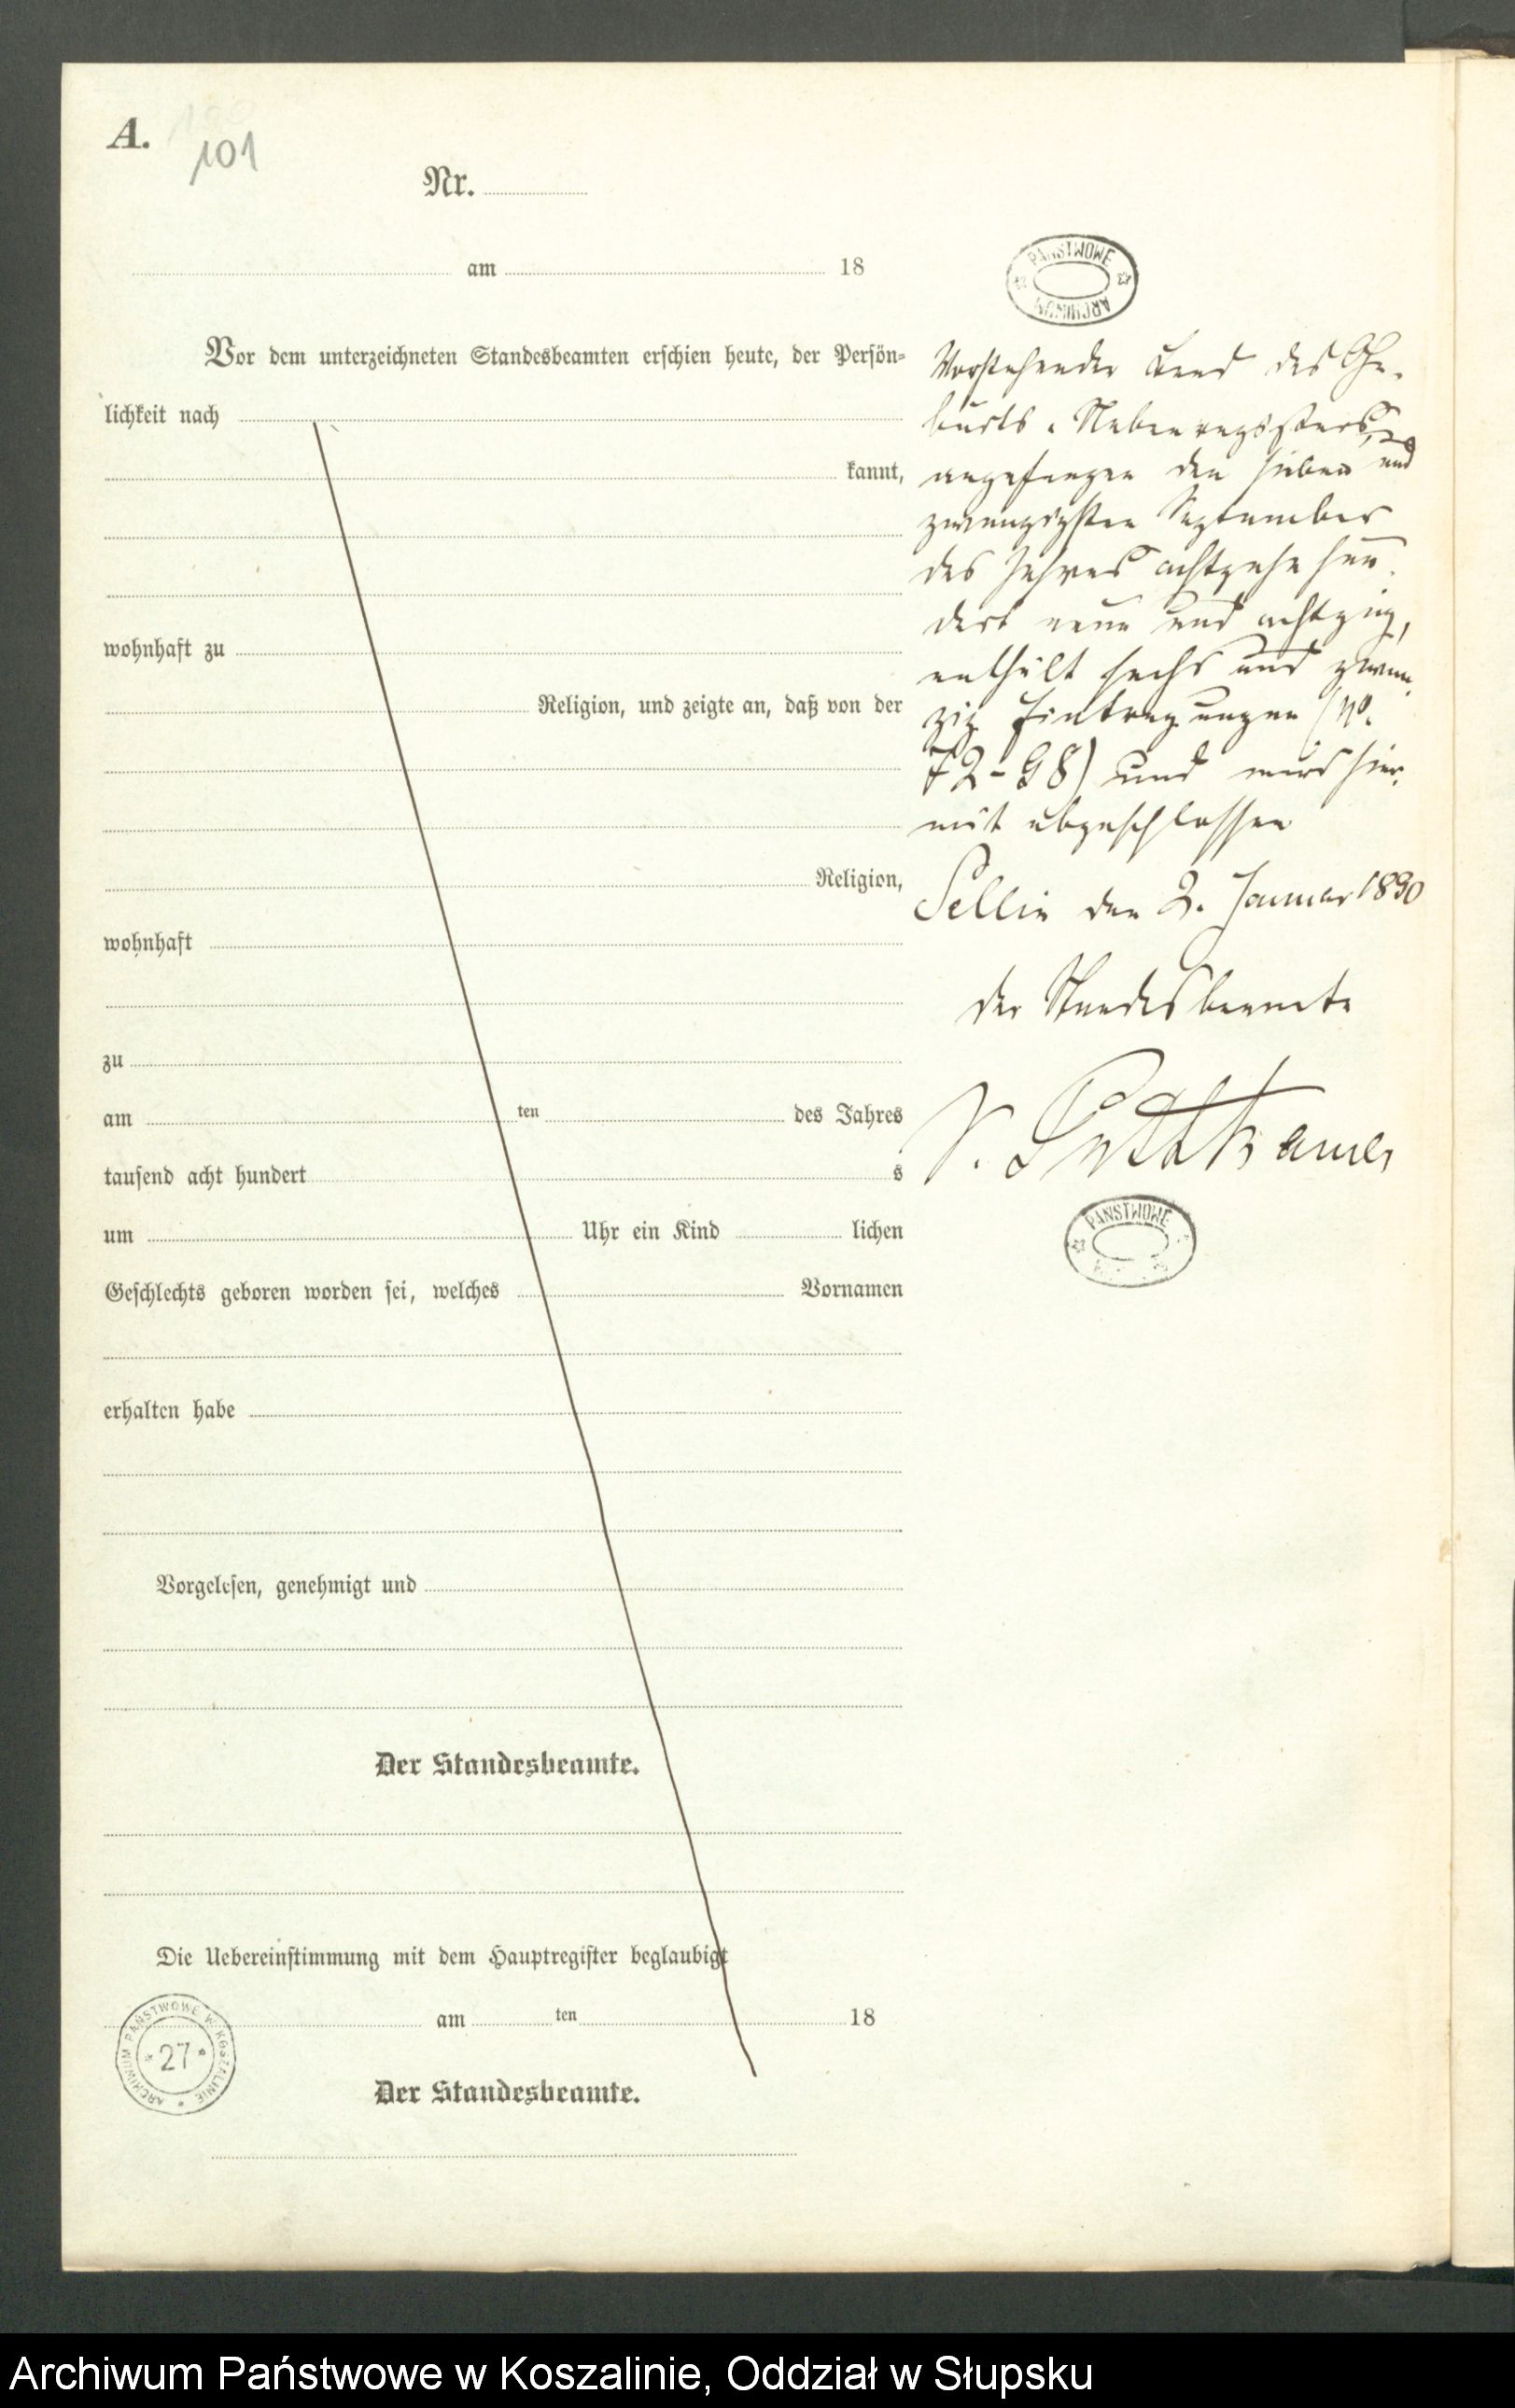 A.
101
Nr.
am 18
PAŃSTWOWE
ARCHIWUM
Vor dem unterzeichneten Standesbeamten erschien heute, der Persön-
lichkeit nach
kannt,
wohnhaft zu
Religion, und zeigte an, daß von der
Religion,
wohnhaft
zu
am ten des Jahres
tausend acht hundert s
um Uhr ein Kind lichen
Geschlechts geboren worden sei, welches Vornamen
erhalten habe
Vorgelesen, genehmigt und
Der Standesbeamte.
Die Uebereinstimmung mit dem Hauptregister beglaubigt
am ten 18
Der Standesbeamte.
ARCHIWUM PAŃSTWOWE W KOSZALINIE
* 27 *
Vorstehender Band des Ge-
burts-Nebenregisters,
angefangen den sieben und
zwanzigsten September
des Jahres achtzehn hun-
dert neun und achtzig,
enthält sechs und zwan-
zig Eintragungen (No.
72-98) und wird hier-
mit abgeschlossen
Sellin den 2. Januar 1890
Der Standesbeamte
v. Puttkamer
PAŃSTWOWE
Archiwum Państwowe w Koszalinie, Oddział w Słupsku